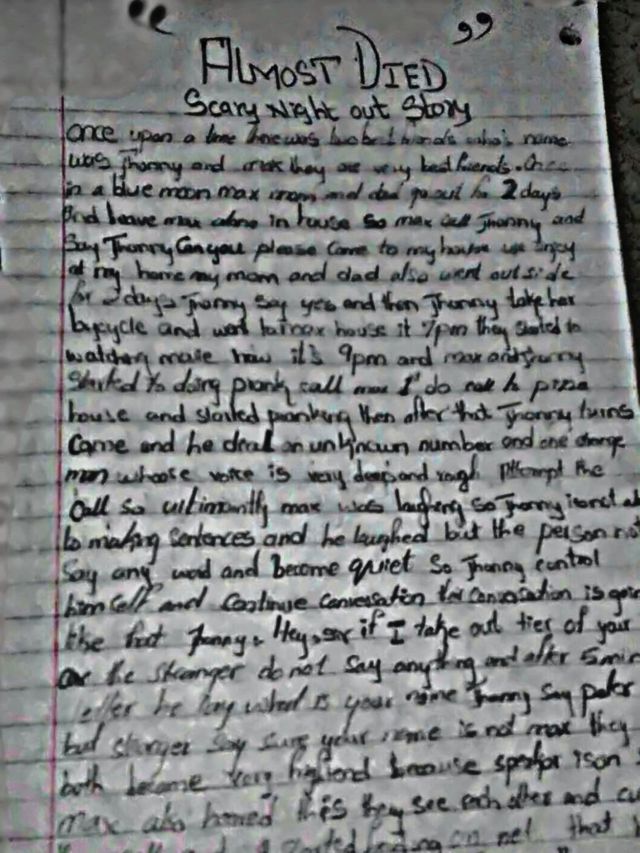 " ALMOST DIED "
Scary Night out Story
once upon a time there was two best friends who's name
was Jhonny and max they are very best friends. Once
in a blue moon max mom and dad go out for 2 days
And leave max alone in house so max call Jhonny and
Say Jhonny Can you please come to my house we enjoy
at my home my mom and dad also went outside
for 2 days Jhonny Say yes and then Jhonny take her
bycycle and went to max house it 7pm they started to
watching movie now it's 9pm and max and Jhonny
Started to doing prank call max 1st do to pizza
house and started pranking then after that Jhonny turns
Came and he deal an unknown number and one strange
man whoose voice is very deep and rough Attempt the
Call so ultimantly max was laughing so Jhonny
to making sentences and he laughed but the person
Say any word and become quiet So Jhonny control
himself and Continue conversation conversation is
like that Jhonny: Hey, sir if I take out tier of your
the stranger do not Say anything and after 5min
he what is your name Jhonny Say
but stranger Say your name is not max they
both become very because speaker is on
max also this they see each other and
on net that